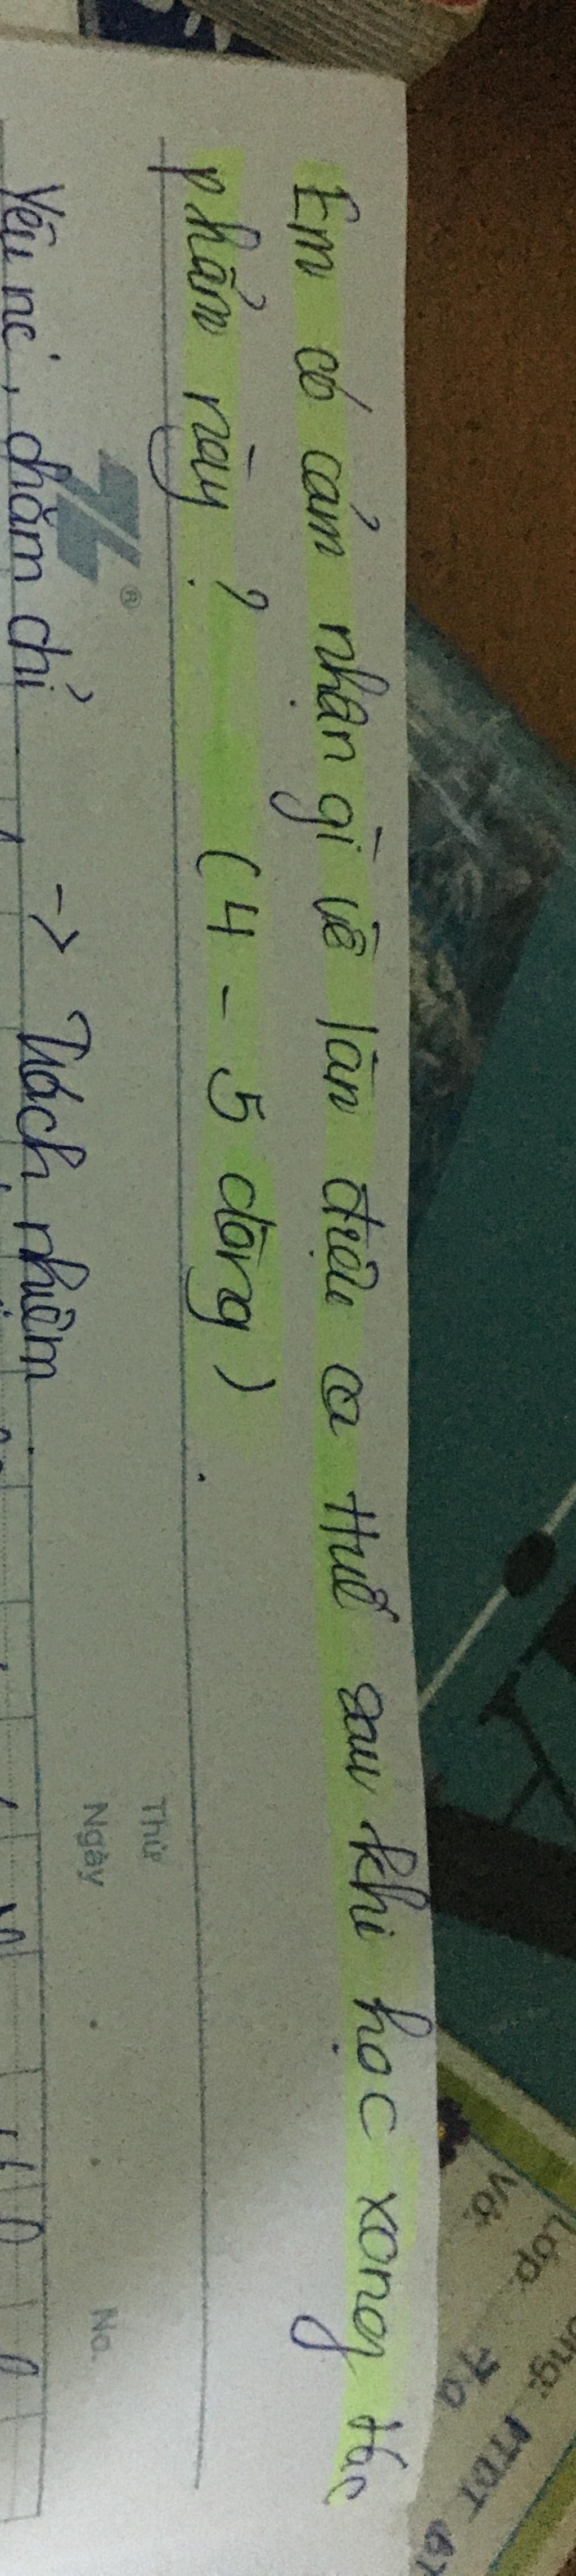 Em có cảm nhận gì về làn điệu ca Huế sau khi học xong tác
phẩm này? (4 - 5 dòng)
Thứ
Ngày
No.
Yêu nc', chăm chỉ → Trách nhiệm
Lớp: 7a
Vở: